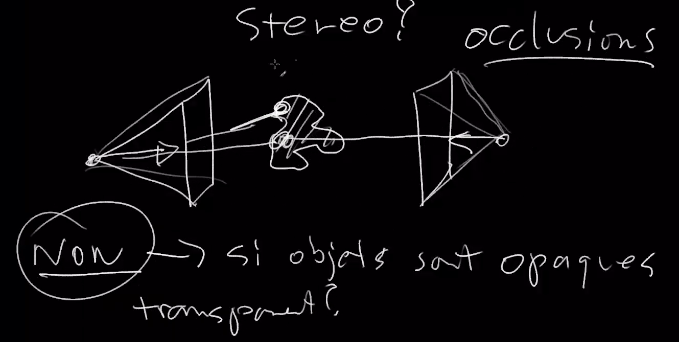 stereo?
occlusions
NON → si objets sont opaques
transparent?